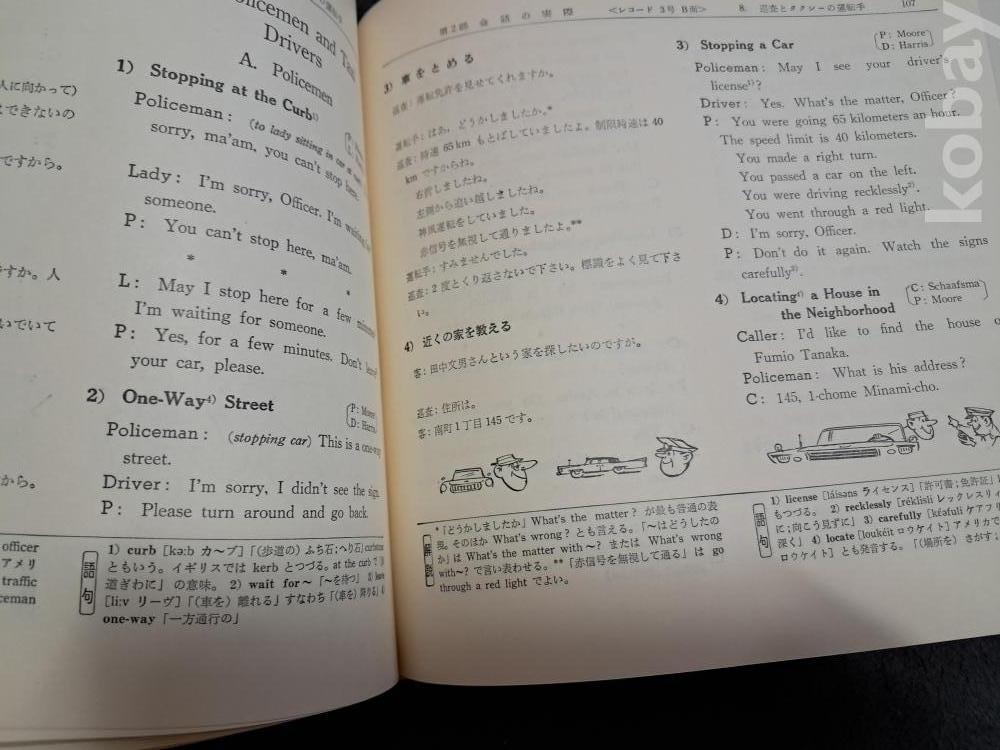 人に向かって)
できないの
ですから。
ですか。人
いでいて
から。
officer
アメリ
traffic
ceman
olicemen and Ta
Drivers
A. Policemen
1) Stopping at the Curb¹⁾
Policeman: (to lady sitting in car
sorry, ma'am, you can't stop here.
Lady: I'm sorry, Officer. I'm waiting
someone.
P: You can't stop here, ma'am.
* * *
L: May I stop here for a few minutes
I'm waiting for someone.
P: Yes, for a few minutes. Don't leave³⁾
your car, please.
2) One-Way⁴⁾ Street
P: Moore
D: Harris
Policeman: (stopping car) This is a one-way
street.
Driver: I'm sorry, I didn't see the sign.
P: Please turn around and go back.
語句
1) curb [kə:b カ〜ブ]「(歩道の) ふち石;へり石」
ともいう。イギリスでは kerb とつづる。at the curb で「歩
道ぎわに」の意味。 2) wait for〜「〜を待つ」 3) leave
[li:v リーヴ]「(車を) 離れる」すなわち「(車を) 降りる」4)
one-way「一方通行の」
第2部 会話の実際 <レコード 3号 B面> 8. 巡査とタクシーの運転手 107
3) 車をとめる
巡査: 運転免許を見せてくれますか。
運転手: はあ, どうかしましたか。*
巡査: 時速 65 km もとばしていましたよ。制限時速は 40
km ですからね。
右折しましたね。
左側から追い越しましたね。
神風運転をしていました。
赤信号を無視して通りましたよ。**
運転手: すみませんでした。
巡査: 2度とくり返さないで下さい。標識をよく見て下さ
い。
4) 近くの家を教える
客: 田中文男さんという家を探したいのですが。
巡査: 住所は。
客: 南町1丁目 145 です。
解説
*「どうかしましたか」What's the matter? が最も普通の表
現。そのほか What's wrong? とも言える。「〜はどうしたの
か」は What's the matter with〜? または What's wrong
with〜? で言い表わせる。**「赤信号を無視して通る」は go
through a red light でよい。
3) Stopping a Car
P: Moore
D: Harris
Policeman: May I see your driver's
license¹⁾?
Driver: Yes. What's the matter, Officer?
P: You were going 65 kilometers an hour.
The speed limit is 40 kilometers.
You made a right turn.
You passed a car on the left.
You were driving recklessly²⁾.
You went through a red light.
D: I'm sorry, Officer.
P: Don't do it again. Watch the signs
carefully³⁾.
4) Locating⁴⁾ a House in
the Neighborhood
C: Schaafsma
P: Moore
Caller: I'd like to find the house o
Fumio Tanaka.
Policeman: What is his address?
C: 145, 1-chome Minami-cho.
語句
1) license [láisəns ライセンス]「許可書;免許証」
もつづる。 2) recklessly [réklisli レックレスリィ
に;向こう見ずに」 3) carefully [kéəfuli ケアフ
深く」 4) locate [loukéit ロウケイト] アメリカで
ロウケイト] とも発音する。「(場所を) さがす;
kobay